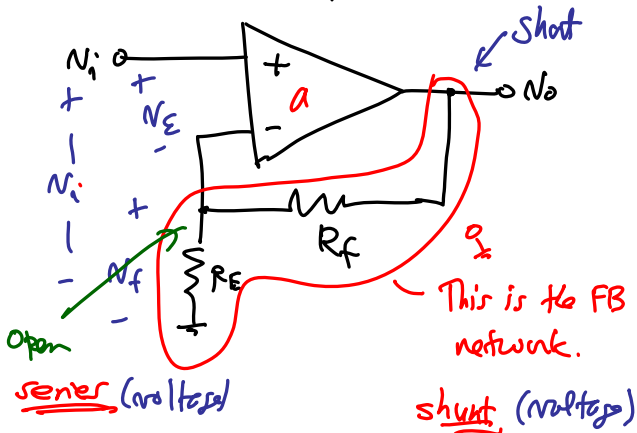 Short
Ni
+
+
No
+
-
a
Nε
-
+
|
Ni
|
-
+
Nf
-
RE
Rf
Open
This is the FB
network.
series (voltage)
shunt (voltage)